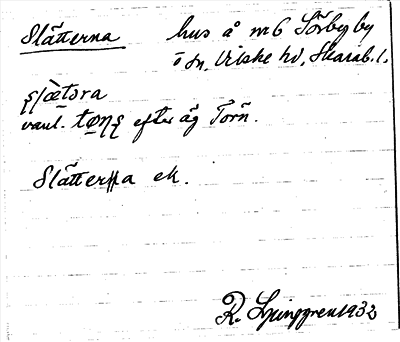 Slätterna hus å nr 6 Sörby by
i sn, Vilske hd, Skarab. l.
ʂl̀ætəra
vanl. tøɳʂ efter äg Torn.
Slätterna ek.
R. Ljunggren 1932